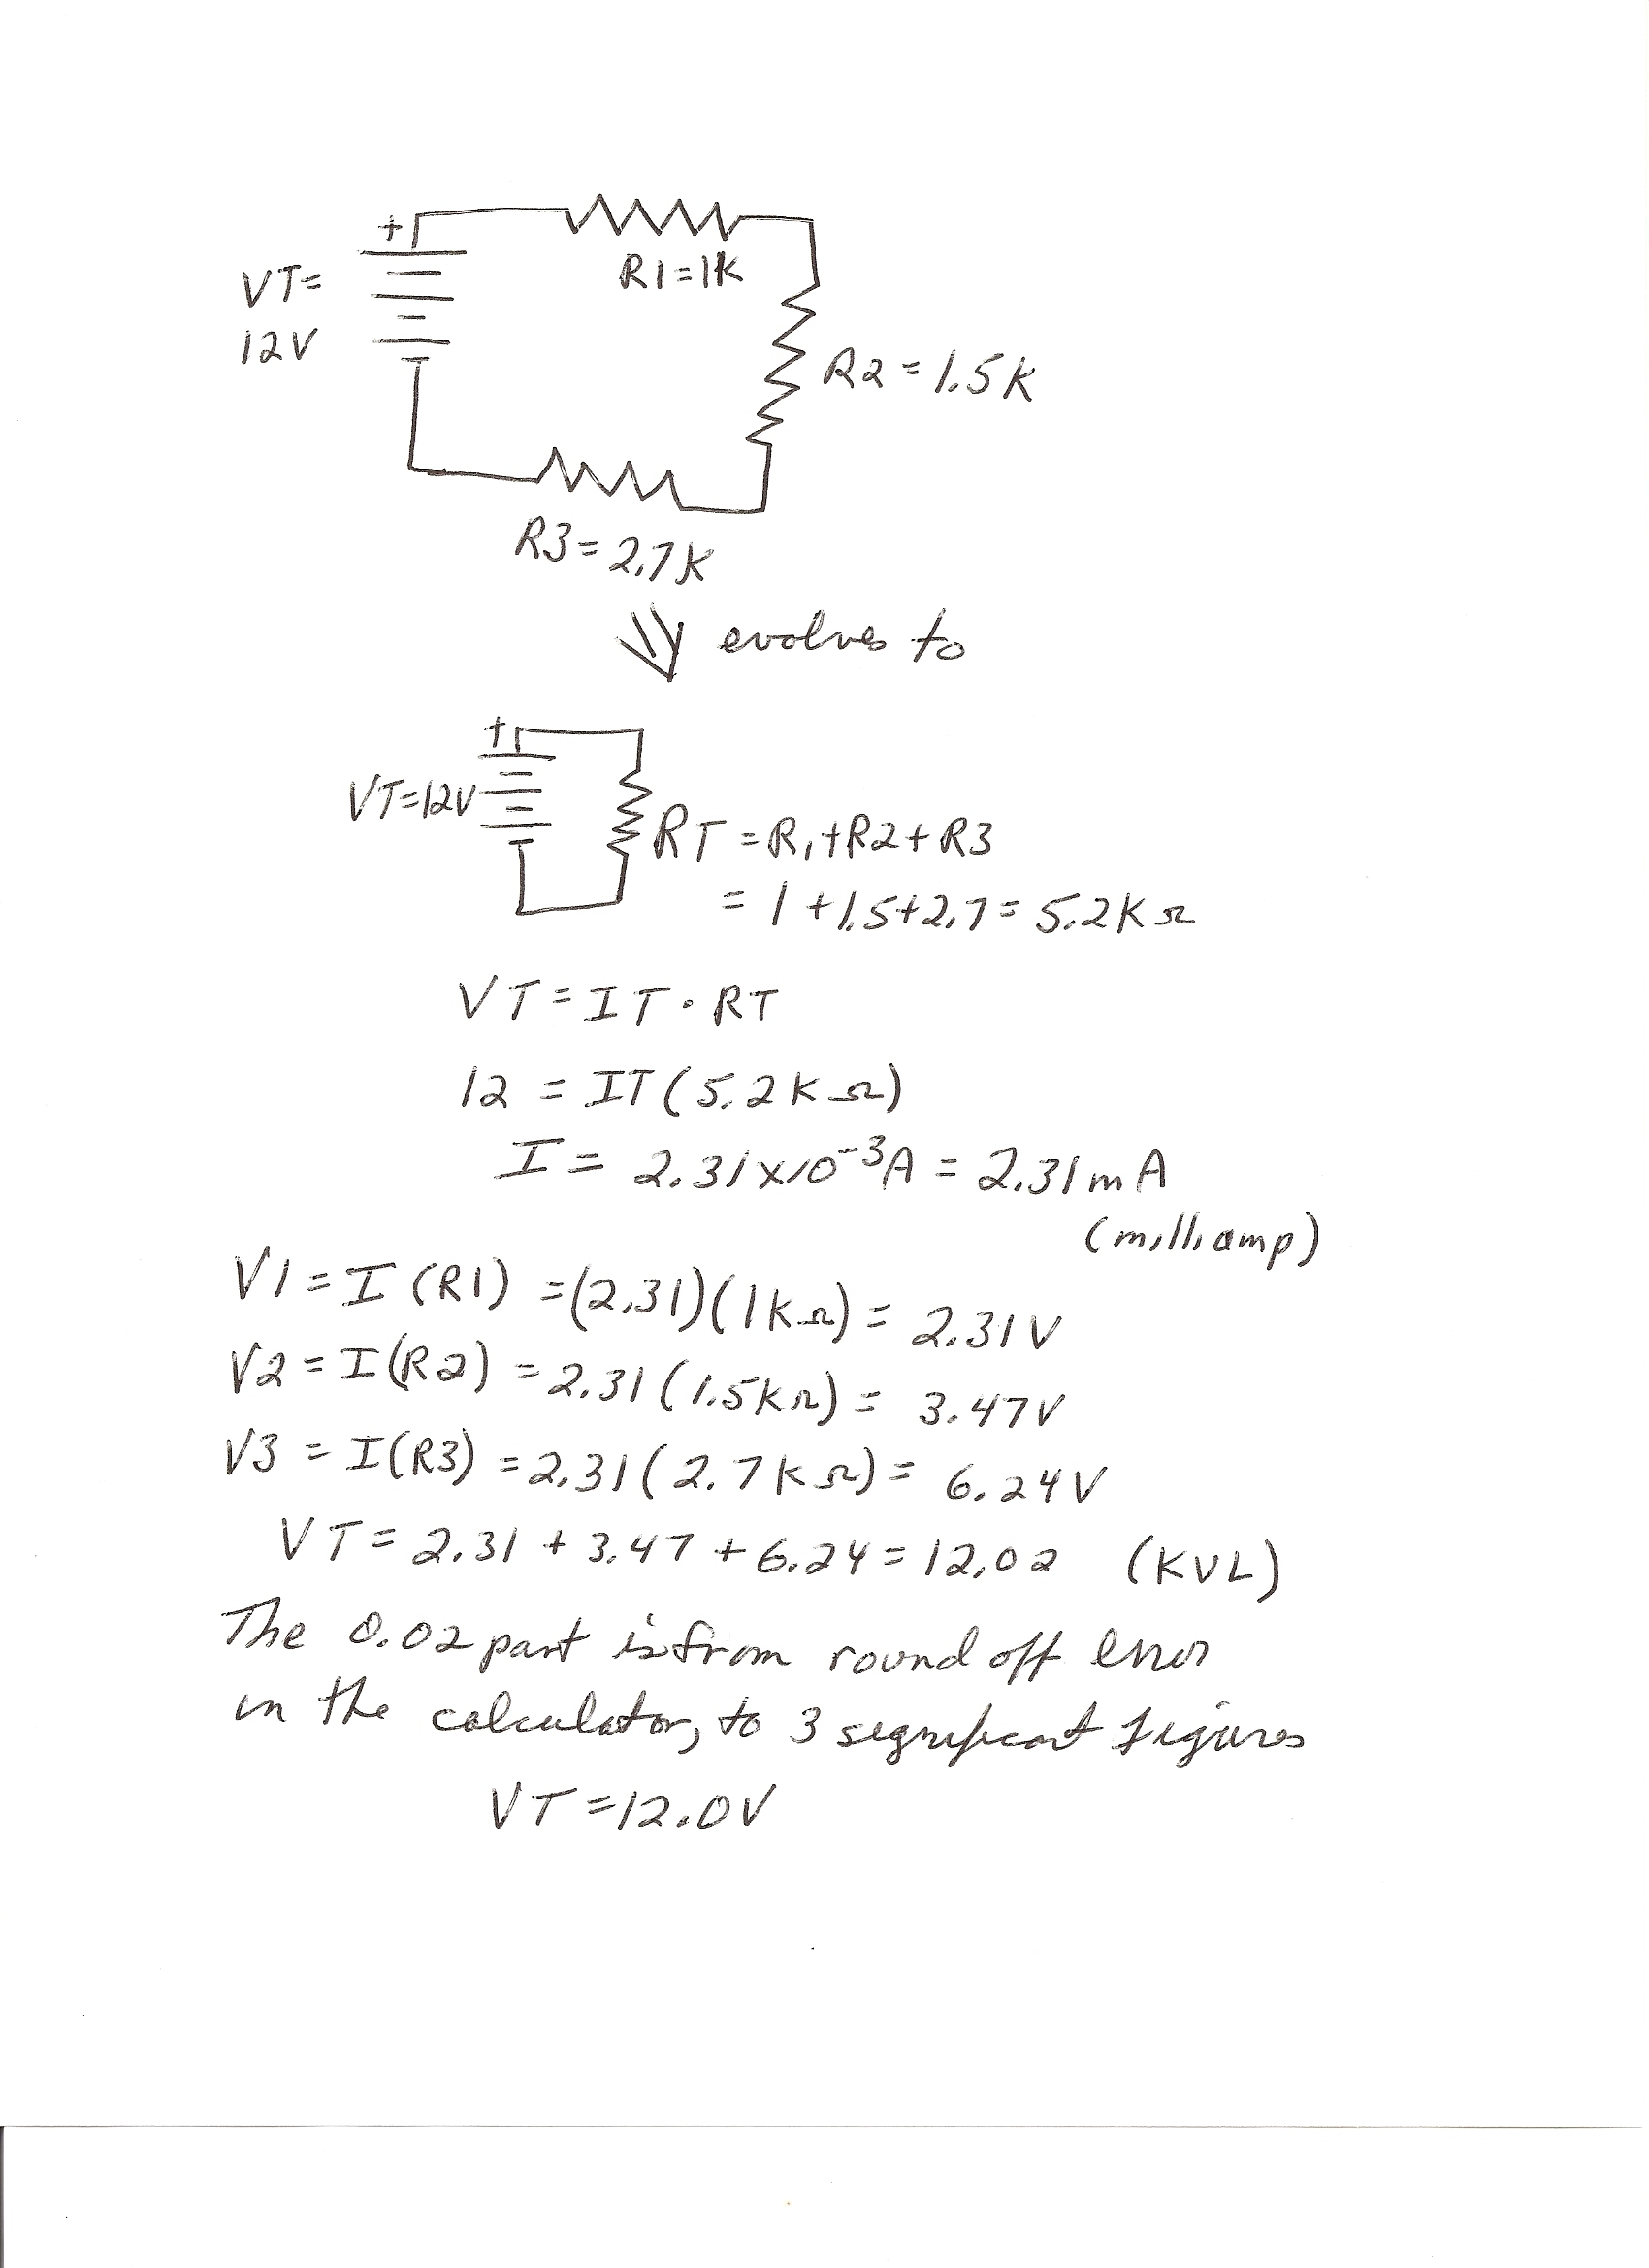 +
VT=
12V
R1=1K
R2=1.5K
R3=2.7K
evolves to
+
VT=12V
RT=R1+R2+R3
=1+1.5+2.7=5.2KΩ
VT=IT·RT
12=IT(5.2KΩ)
I=2.31x10⁻³A=2.31mA
(milliamp)
V1=I(R1)=(2.31)(1KΩ)=2.31V
V2=I(R2)=2.31(1.5KΩ)=3.47V
V3=I(R3)=2.31(2.7KΩ)=6.24V
VT=2.31+3.47+6.24=12.02 (KVL)
The 0.02 part is from round off error
in the calculator, to 3 significant figures
VT=12.0V